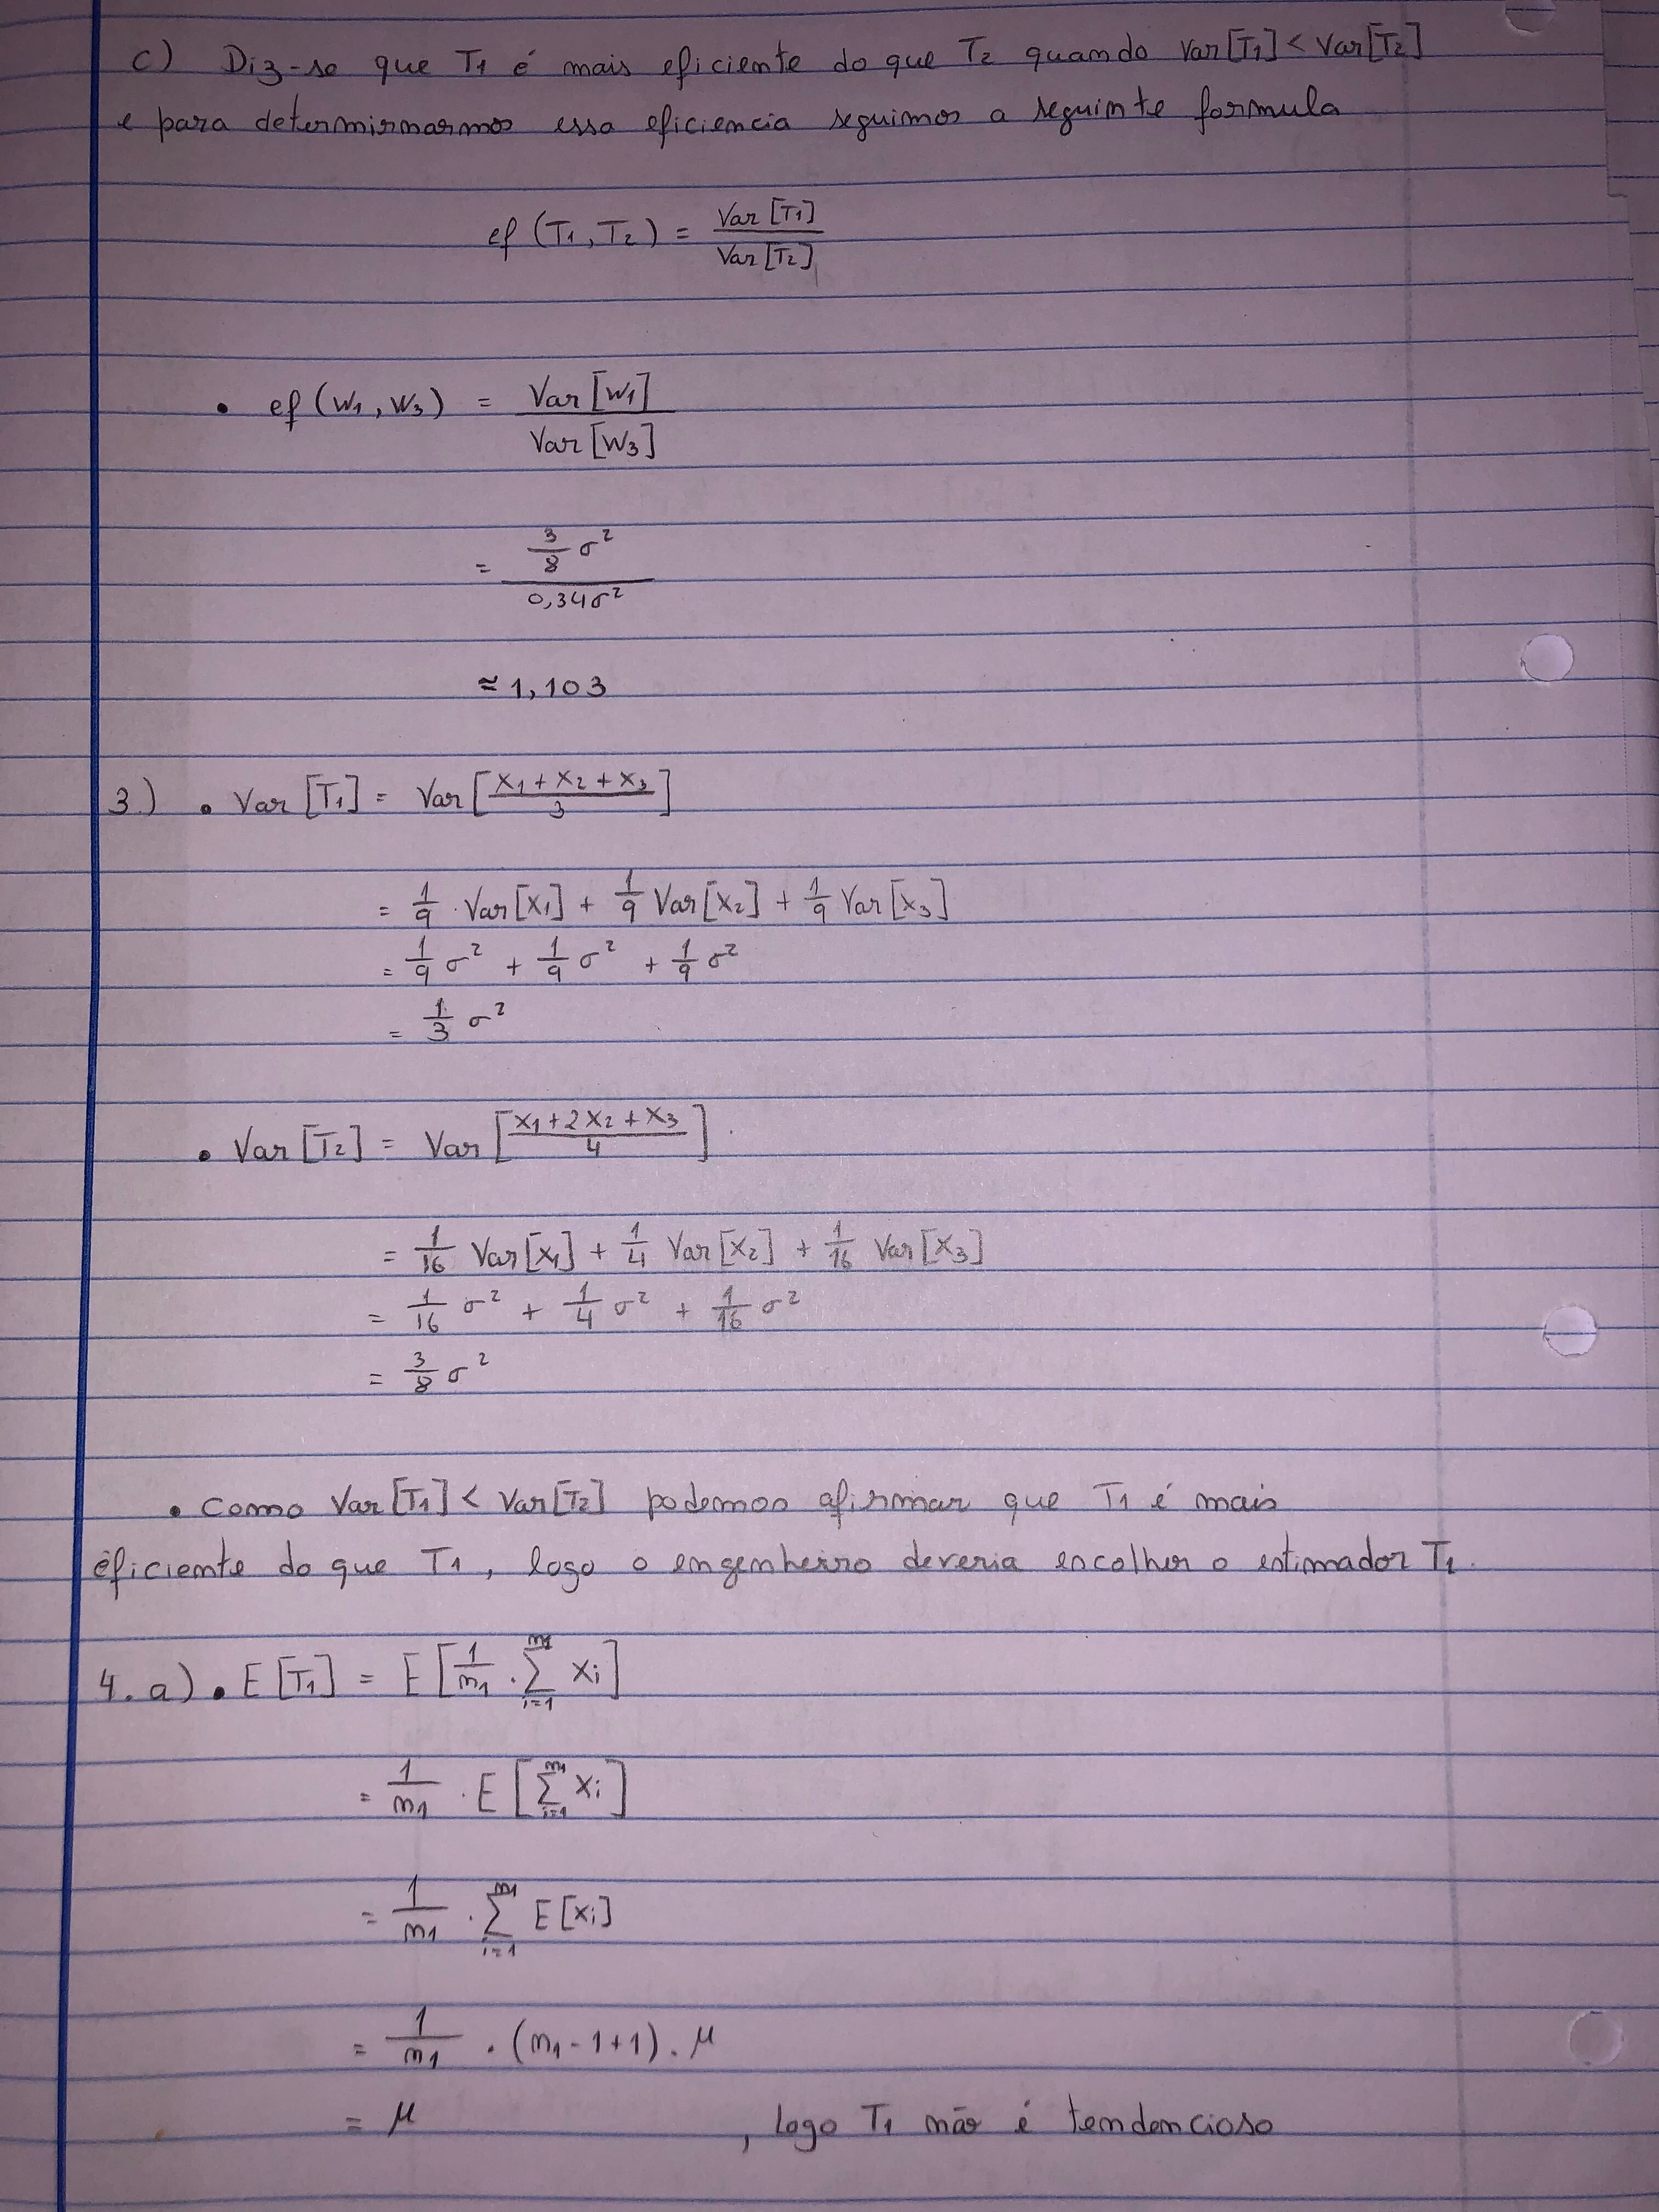 c) Diz-se que T1 é mais eficiente do que T2 quando Var[T1] < Var[T2]
e para determirnarmos essa eficiencia seguimos a seguinte formula
ef (T1, T2) = Var[T1] / Var[T2]
• ef (W1, W3) = Var[W1] / Var[W3]
= 3/8 σ² / 0,34σ²
≈ 1,103
3.) • Var[T1] = Var[(X1 + X2 + X3)/3]
= 1/9 · Var[X1] + 1/9 Var[X2] + 1/9 Var[X3]
= 1/9 σ² + 1/9 σ² + 1/9 σ²
= 1/3 σ²
• Var[T2] = Var[(X1 + 2X2 + X3)/4]
= 1/16 Var[X1] + 1/4 Var[X2] + 1/16 Var[X3]
= 1/16 σ² + 1/4 σ² + 1/16 σ²
= 3/8 σ²
• Como Var[T1] < Var[T2] podemos afirmar que T1 é mais
eficiente do que T1, logo o engenheiro deveria escolher o estimador T1.
4. a) • E[T1] = E[1/n1 · Σ_{i=1}^{n1} Xi]
= 1/n1 · E[Σ_{i=1}^{n1} Xi]
= 1/n1 · Σ_{i=1}^{n1} E[Xi]
= 1/n1 · (n1 - 1 + 1) · μ
= μ , logo T1 não é tendencioso